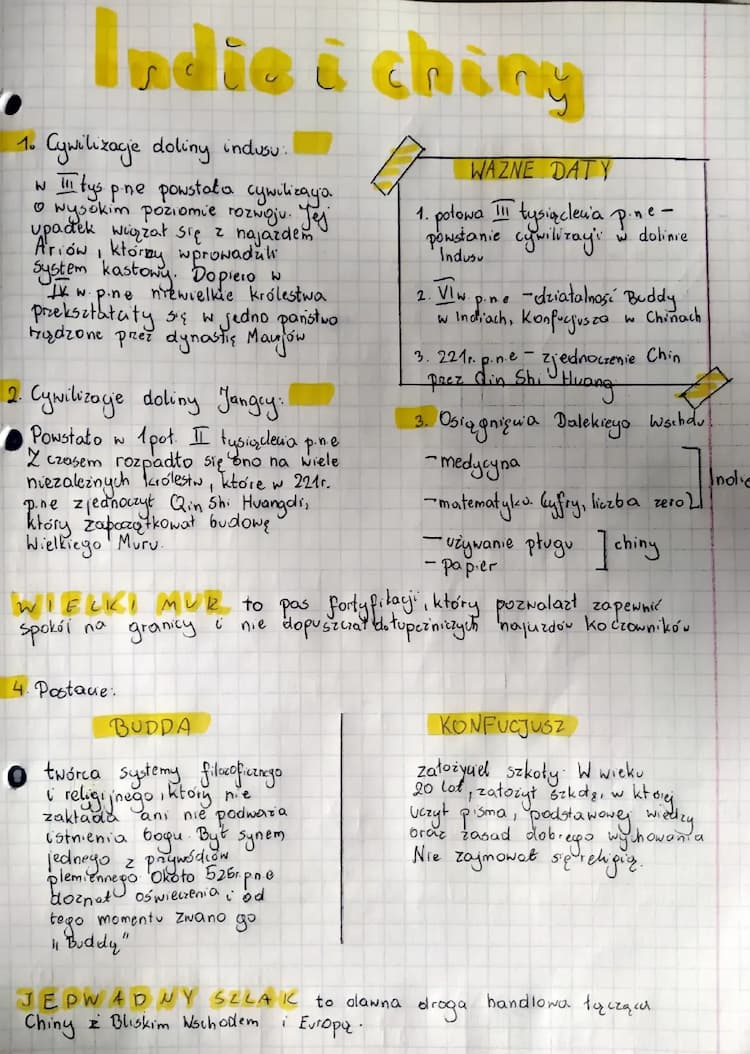 Indie i chiny
1. Cywilizacje doliny indusu:
w III tys p.ne powstała cywilizacja
o wysokim poziomie rozwoju. Jej
upadek wiązał się z najazdem
Ariów, którzy wprowadzili
system kastowy. Dopiero w
IV w p.ne niewielkie królestwa
przekształtaty się w jedno państwo
rządzone przez dynastię Maurjów
WAŻNE DATY
1. połowa III tysiąclecia p.n.e –
powstanie cywilizacji w dolinie
Indusu
2. VI w. p.n.e – działalność Buddy
w Indiach, Konfucjusza w Chinach
3. 221r. p.n.e – zjednoczenie Chin
przez Qin Shi Huang
2. Cywilizacje doliny Jangcy:
Powstało w 1 poł. II tysiąclecia p.n.e
Z czasem rozpadło się ono na wiele
niezależnych królestw, które w 221r.
p.n.e zjednoczył Qin Shi Huangdi,
który zapoczątkował budowę
Wielkiego Muru.
3. Osiągnięcia Dalekiego Wschdu:
- medycyna
- matematyka (cyfry, liczba zero)
Indie
- używanie pługu
- papier
chiny
WIELKI MUR to pas fortyfikacji, który pozwalał zapewnić
spokój na granicy i nie dopuszczał do łupieżniczych najazdów koczowników
4. Postacie:
BUDDA
twórca systemy filozoficznego
i religijnego, który nie
zakłada ani nie podważa
istnienia bogu. Był synem
jednego z przywódców
plemiennego. Około 526r. p.n.e
doznał oświecenia i od
tego momentu zwano go
„Buddą"
KONFUCJUSZ
założyciel szkoły. W wieku
20 lat, założył szkołę, w której
uczył pisma, podstawowej wiedzy
oraz zasad dobrego wychowania
Nie zajmował się religią.
JEDWADNY SZLAK to dawna droga handlowa łącząca
Chiny z Bliskim Wschodem i Europą.